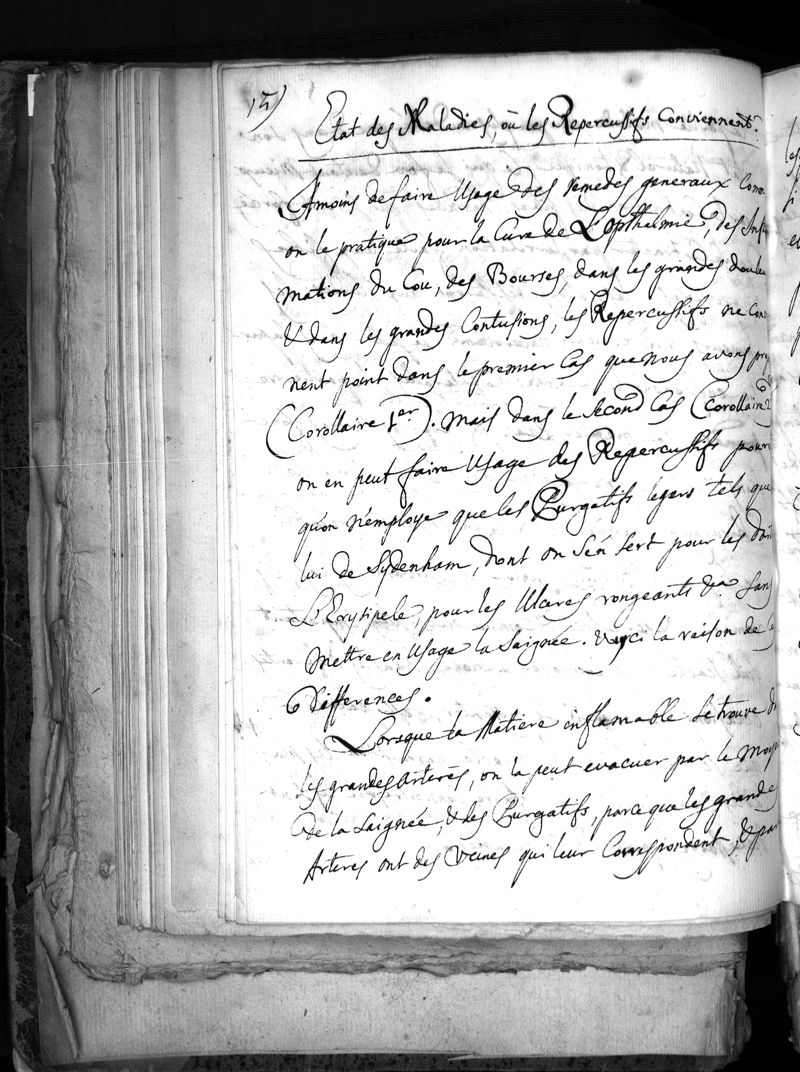 15)
Etat des Maladies, où les Repercussifs Conviennent.
Amoins de faire Usage des remedes generaux Com
on le pratique pour la Cure de L'opthalmie, des Infla
mations du Cou, des Bourses, dans les grandes douleu
& dans les grandes Contusions, les Repercussifs ne Con
nent point dans le premier Cas que nous avons pro
(Corollaire 1.er). mais dans le second Cas (Corollaire 2
on en peut faire Usage des Repercussifs pourv
qu'on n'employe que les Purgatifs legers tels que
lui de Sydenham, dont on s'en sert pour les
L'Erysipele, pour les Ulceres rongeants &a sans
mettre en Usage la saignée. Voyci la raison de
Differences.
Lorsque la Matiere inflamable se trouve d
les grandes Arteres, on la peut evacuer par le moy
de la saignée, & des Purgatifs, parceque les grandes
Arteres ont des Veines qui leur Correspondent, & par